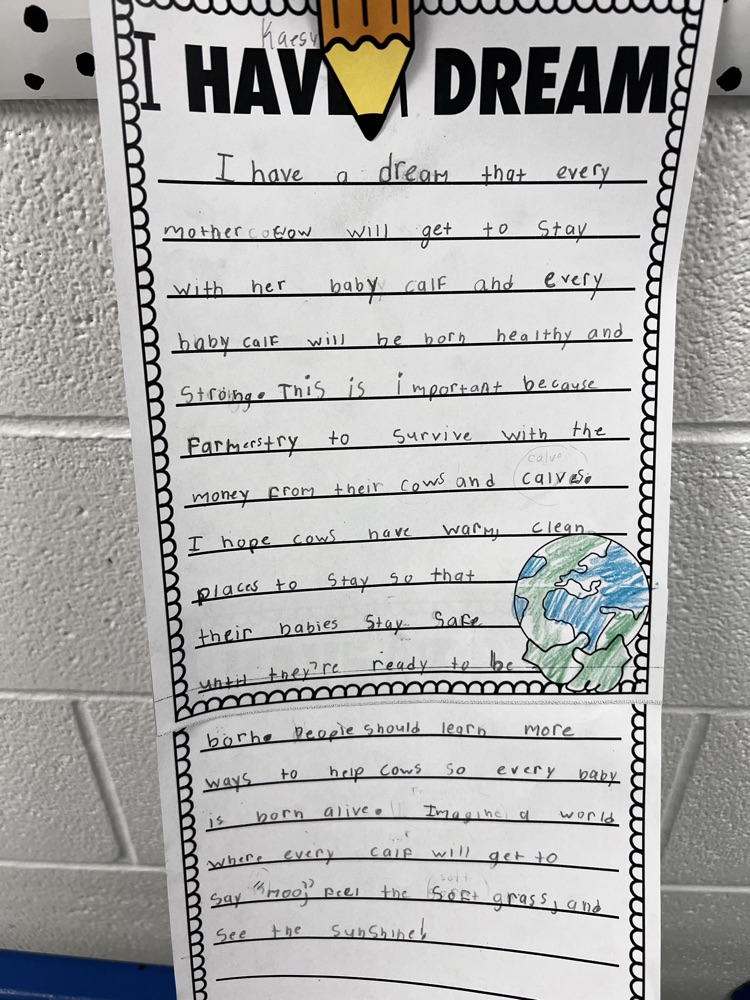 Kaesy
I HAVE A DREAM
I have a dream that every
mother cow will get to stay
with her baby calf and every
baby calf will be born healthy and
strong. This is important because
farmers try to survive with the
calve
money from their cows and calves.
I hope cows have warm, clean
places to stay so that
their babies stay safe
until they're ready to be
born. People should learn more
ways to help cows so every baby
is born alive. Imagine a world
where every calf will get to
soft
say "Moo," feel the soft grass, and
see the sunshine!